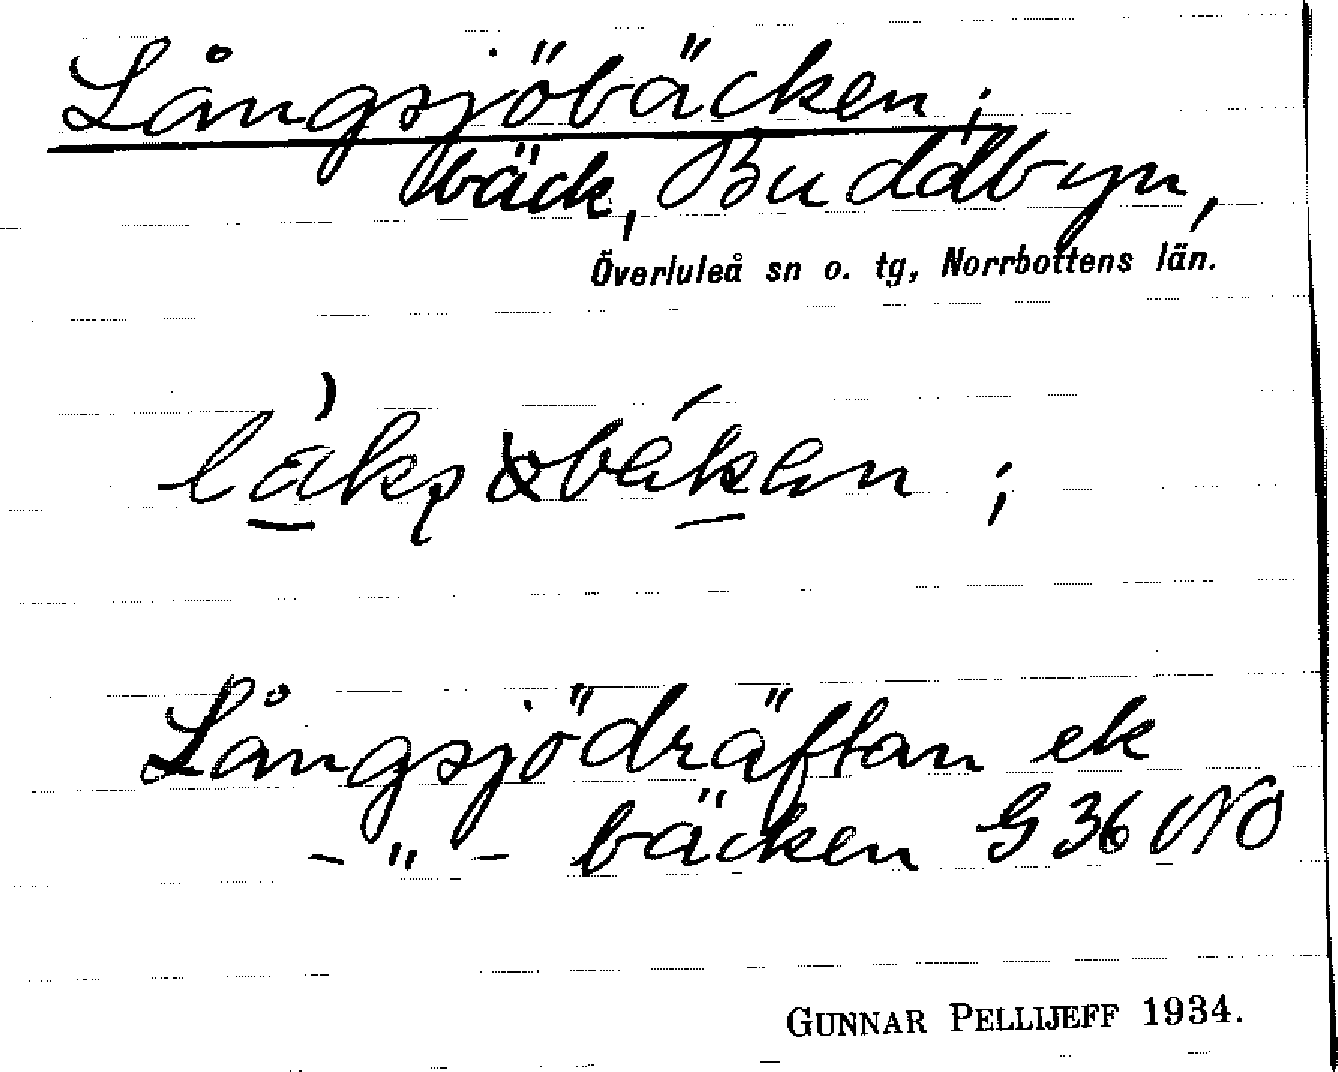 Långsjöbäcken;
bäck, Buddbyn,
Överluleå sn o. tg, Norrbottens län.
Långsjödräftan ek
- " - bäcken G 36 NO
GUNNAR PELLIJEFF 1934.